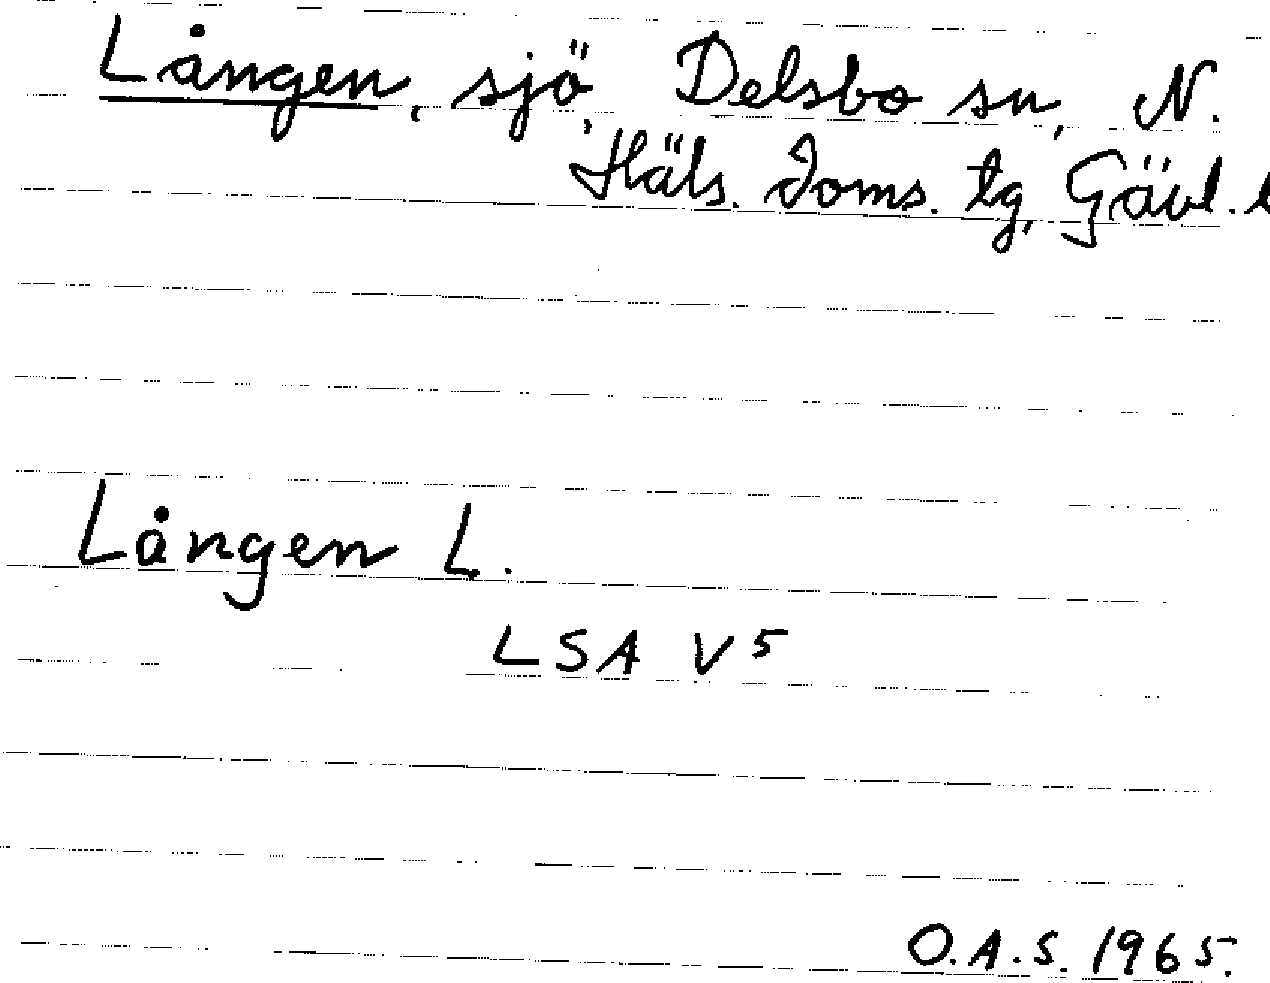 Lången, sjö, Delsbo sn, N.
Häls. doms. tg, Gävl. l
Lången L.
LSA V5
O.A.S. 1965.